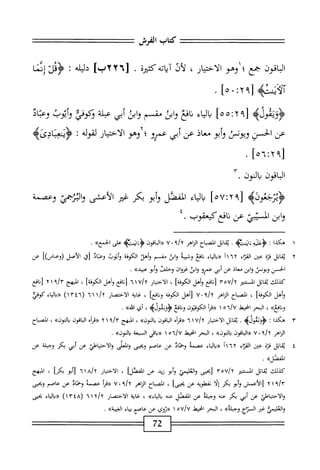 كتاب الفرش
الباقون جمع ؛ ١وهو الاختيار ، لأنّ آياته كثيرة . [٢٢٦ب] دليله : ﴿قُلْ إِنَّمَا
ٱلْآيَٰتُ﴾ [٢٩: ٥٠] .
﴿وَيَقُولُ﴾ [٢٩: ٥٥] بالياء نافعٌ وابنُ مقسم وابنُ أبي عبلة وكوفيٌّ وأيّوبُ وعبّادٌ
عن الحسنِ ويونسُ وأبو معاذ عن أبي عمرٍو ؛ ٢وهو الاختيار لقوله : ﴿يَٰعِبَادِيَ﴾
[٢٩: ٥٦] .
الباقون بالنون . ٣
﴿يُرْجَعُونَ﴾ [٢٩: ٥٧] بالياء المفضّل وأبو بكر غير الأعشى والبُرْجُميّ وعصمة
وابن المسيّبيّ عن نافع كيعقوب . ٤
١ هكذا : . يُقابل المصباح الزاهر ٧٠٩/٢ «الباقون على الجمع» .
٢ يُقابل قرّة عين القرّاء ١٦٢أ «بالياء نافعٌ وشيبةُ وابنُ مقسم وأهلُ الكوفة وأيّوبُ وعبّادٌ [في الأصل (وعباس)] عن
الحسنِ ويونسُ وابن معاذ عن أبي عمرٍو وابنُ غزوان وخلفٌ وأبو عبيد» .
كذلك يُقابل المستنير ٣٥٧/٢ [نافع وأهل الكوفة] ، الاختيار ٦١٧/٢ [نافع وأهل الكوفة] ، المبهج ٢١٩/٣ [نافع
وأهل الكوفة] ، المصباح الزاهر ٧٠٩/٢ [أهل الكوفة ونافع] ، غاية الاختصار ٦١١/٢ (١٣٤٦) «بالياء كوفيٌّ
ونافعٌ» ، البحر المحيط ١٥٦/٧ «قرأ الكوفيّون ونافعٌ ﴿وَيَقُولُ﴾ ، أي الله» .
٣ هكذا : ﴿وَنَقُولُ﴾ . يُقابل الاختيار ٦١٧/٢ «قرأه الباقون بالنون» ، المبهج ٢١٩/٣ «قرأه الباقون بالنون» ، المصباح
الزاهر ٧٠٩/٢ «الباقون بالنون» ، البحر المحيط ١٥٦/٧ «باقي السبعة بالنون» .
٤ يُقابل قرّة عين القرّاء ١٦٢أ «بالياء عصمةُ وحمّادٌ عن عاصم ويحيى والمعلّى والاحتياطيّ عن أبي بكر وجبلة عن
المفضّل» .
كذلك يُقابل المستنير ٣٥٧/٢ [يحيى والعُليميّ وأبو زيد عن المفضّل] ، الاختيار ٦١٨/٢ [أبو بكر] ، المبهج
٢١٩/٣ [الأعمش وأبو بكر إلّا نفطويه عن يحيى] ، المصباح الزاهر ٧٠٩/٢ «قرأ عصمةُ وحمّادٌ عن عاصم ويحيى
والاحتياطيّ عن أبي بكر عنه وجبلةُ عن المفضّل عنه بالياء» ، غاية الاختصار ٦١٢/٢ (١٣٤٨) «بالياء يحيى
والعُليميُّ غير السرّاج وجبلةُ» ، البحر المحيط ١٥٧/٧ «رُوي عن عاصم بياء الغيبة» .
72